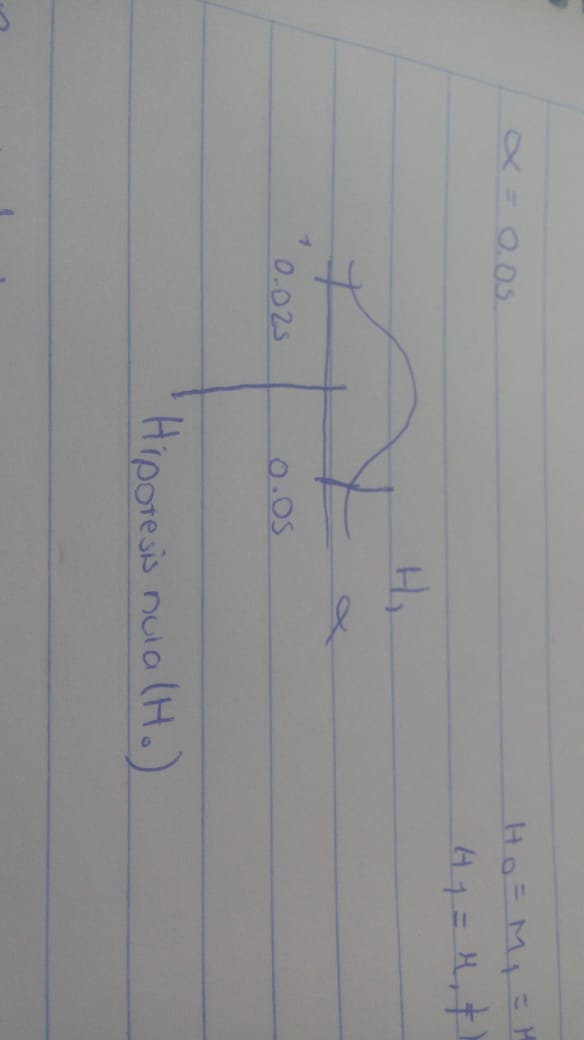 α = 0.05
H0 = M1 = M
H1 = M1 ≠
H1
α
0.025
0.05
Hipotesis nula (H0)